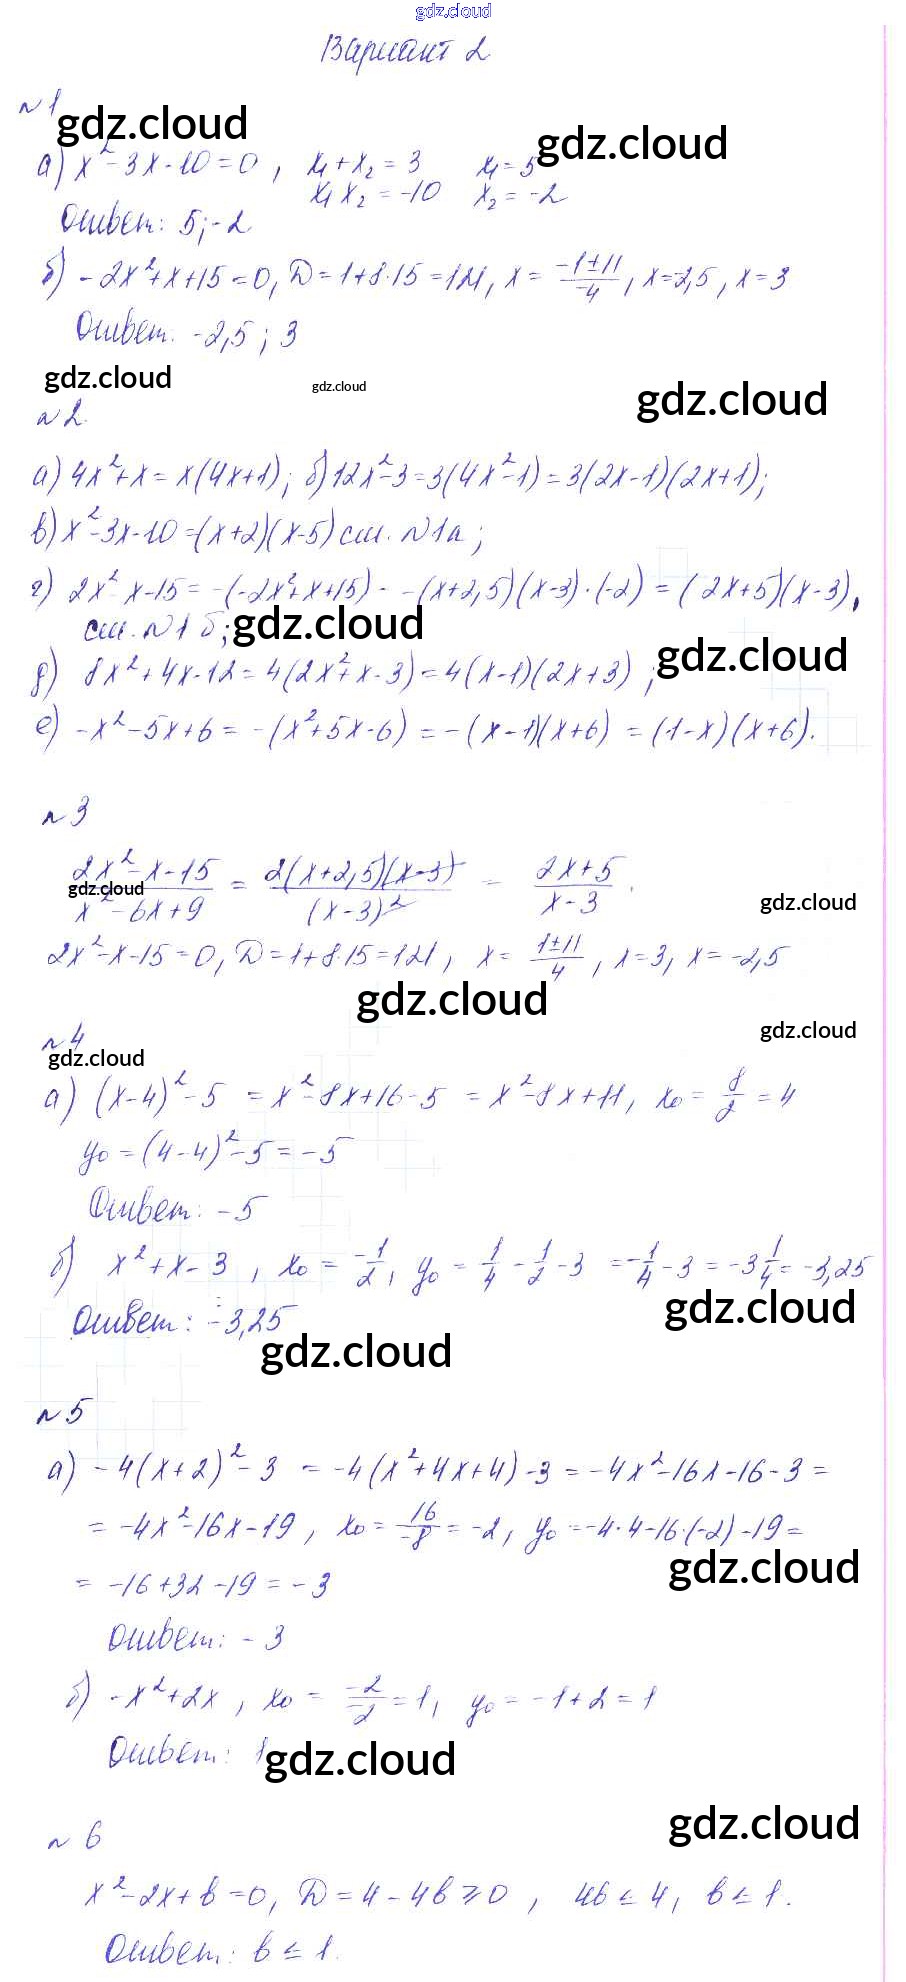 gdz.cloud
Вариант 2
№1
gdz.cloud
gdz.cloud
а) x²-3x-10=0, x₁+x₂=3 x₁=5
x₁x₂=-10 x₂=-2
Ответ: 5;-2
б) -2x²+x+15=0, D=1+8·15=121, x=(-1±11)/(-4), x=-2,5, x=3
Ответ: -2,5; 3
gdz.cloud
gdz.cloud
gdz.cloud
№2.
а) 4x²+x=x(4x+1); б) 12x²-3=3(4x²-1)=3(2x-1)(2x+1);
в) x²-3x-10=(x+2)(x-5) см. №1а;
г) 2x²-x-15=-(-2x²+x+15)=-(x+2,5)(x-3)·(-2)=(2x+5)(x-3),
см. №1 б;
gdz.cloud
gdz.cloud
д) 8x²+4x-12=4(2x²+x-3)=4(x-1)(2x+3);
е) -x²-5x+6=-(x²+5x-6)=-(x-1)(x+6)=(1-x)(x+6).
№3
(2x²-x-15)/(x²-6x+9)=2(x+2,5)(x-3)/(x-3)²=(2x+5)/(x-3).
gdz.cloud
gdz.cloud
2x²-x-15=0, D=1+8·15=121, x=(1±11)/4, x=3, x=-2,5
gdz.cloud
№4
gdz.cloud
gdz.cloud
а) (x-4)²-5=x²-8x+16-5=x²-8x+11, x₀=8/2=4
y₀=(4-4)²-5=-5
Ответ: -5
б) x²+x-3, x₀=-1/2, y₀=1/4-1/2-3=-1/4-3=-3 1/4=-3,25
Ответ: -3,25
gdz.cloud
gdz.cloud
№5
а) -4(x+2)²-3=-4(x²+4x+4)-3=-4x²-16x-16-3=
=-4x²-16x-19, x₀=16/(-8)=-2, y₀=-4·4-16·(-2)-19=
gdz.cloud
=-16+32-19=-3
Ответ: -3
б) -x²+2x, x₀=(-2)/(-2)=1, y₀=-1+2=1
Ответ: 1
gdz.cloud
gdz.cloud
№6
x²-2x+b=0, D=4-4b≥0, 4b≤4, b≤1.
Ответ: b≤1.